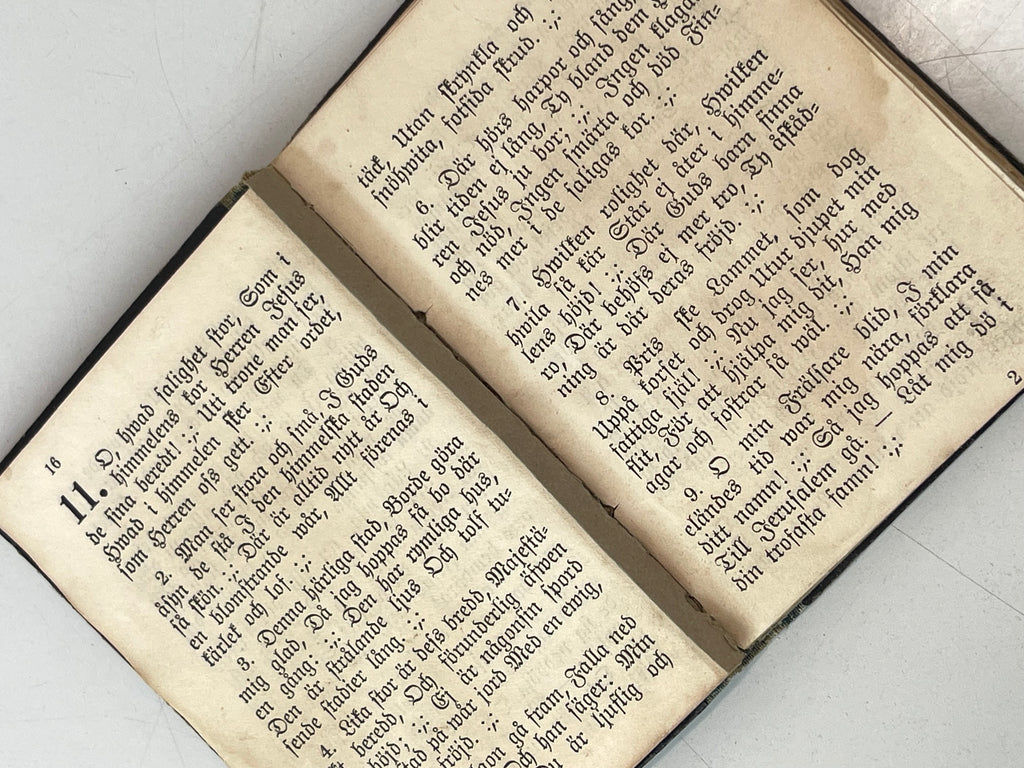 16
11. O, hwad salighet stor, Som i
himmelens kor Herren Jesus
de sina beredt! :,: Uti trone man ser,
Hwad i himmelen sker Efter ordet,
som Herren oss gett. :,:
2. Man ser stora och små, I Guds
åsyn de stå, I den himmelska staden
så skön. :,: Där är alltid nytt år Och
en blomstrande wår, Allt förenas i
kärlek och lof. :,:
3. Denna härliga stad, Borde göra
mig glad, Då jag hoppas få bo där
en gång. :,: Den har rymliga hus,
Den är strålande ljus Och tolf tu-
sende stadier lång. :,:
4. Lika stor är dess bredd, Majestä-
beredd, Och förunderlig äfwen
höjd. :,: Ej är någonsin spord
stad på wår jord Med en ewig,
fröjd. :,:
gå fram, Falla ned
Och han säger: Min
Du är ljuflig och
täck, Utan skrynkla och
snöhwita, fotsida skrud. :,:
6. Där hörs harpor och sång,
blir tiden ej lång, Ty bland dem
ren Jesus ju bor; :,: Ingen klagan
och nöd, Ingen smärta och död Fin-
nes mer i de saligas kor. :,:
7. Hwilken rolighet där, Hwilken
hwila så kär Står ej åter i himme-
lens höjd! :,: Där Guds barn finna
ro, Där behöfs ej mer tro, Ty åskåd-
ning är där deras fröjd. :,:
8. Pris ske Lammet, som dog
Uppå korset och drog Utur djupet min
fattiga själ! :,: Nu jag ser, hur med
flit, För att hjälpa mig dit, Han mig
agar och fostrar så wäl. :,:
9. O min Frälsare blid, I min
eländes tid war mig nära, förklara
ditt namn! :,: Så jag hoppas att få
Till Jerusalem gå. — Låt mig dö i
din trofasta famn! :,:
2